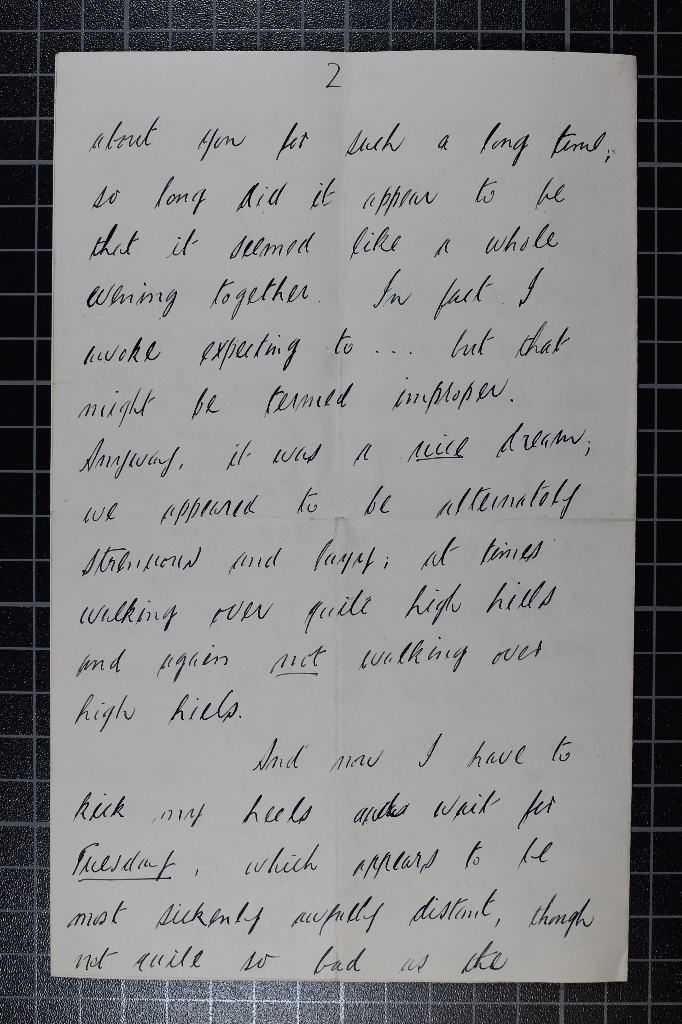 2
about you for such a long time;
so long did it appear to be
that it seemed like a whole
evening together. In fact I
awoke expecting to ... but that
might be termed improper.
Anyway, it was a nice dream;
we appeared to be alternately
strenuous and lazy; at times
walking over quite high hills
and again not walking over
high hills.
And now I have to
kick my heels and wait for
Tuesday, which appears to be
most sickenly awfully distant, though
not quite so bad as the